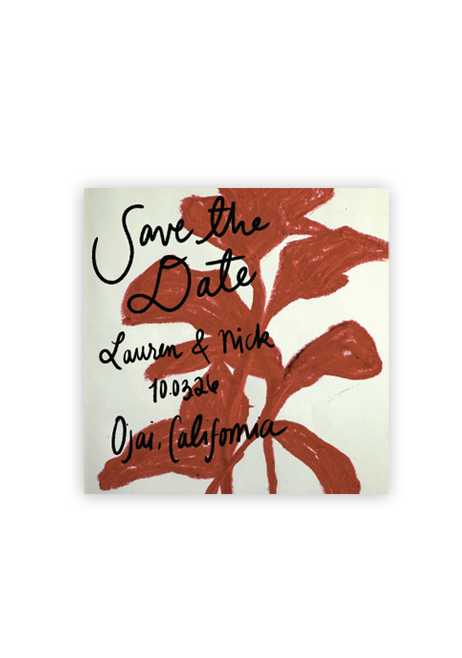 Save the
Date
Lauren & Nick
10.03.26
Ojai, California